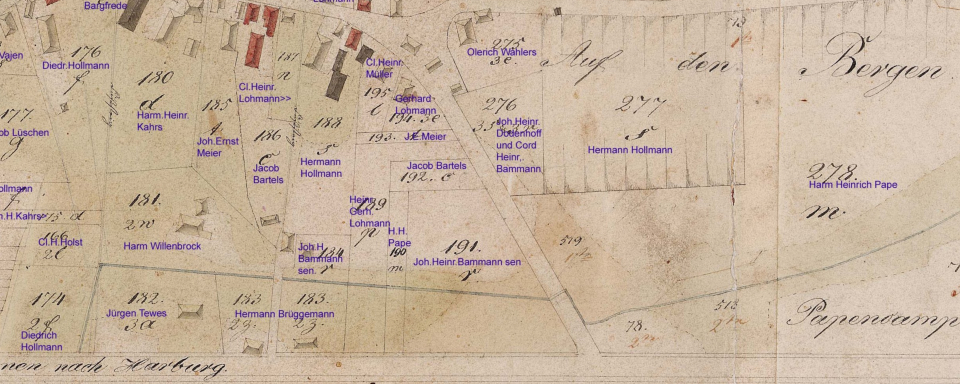 Bargfrede
Lohmann
Vajen
176
Diedr.Hollmann
f
180
d
Harm.Heinr.
Kahrs
177
ob Lüschen
g
185
f
Joh.Ernst
Meier
Cl.Heinr.
Lohmann>>
187
n
186
c
Jacob
Bartels
188
s
Hermann
Hollmann
Cl.Heinr.
Müller
195
l
Gerhard
Lohmann
194. 3e
193. t
J.C.Meier
Jacob Bartels
192. c
Olerich Wahlers
275
3e.
276
Joh.Heinr.
Dodenhoff
und Cord
Heinr.
Bammann
Auf den Bergen
13
277
s
Hermann Hollmann
278.
Harm Heinrich Pape
m.
ollmann
f
n.H.Kahrs>
175 d
166
Cl.H.Holst
2e
181.
2w
Harm Willenbrock
Heinr.
Gerh.
Lohmann
189
p
H.H.
Pape
190
m
Joh.H.
Bammann
sen.
184
r
191.
Joh.Heinr.Bammann sen
r.
519
174
2f
Diedrich
Hollmann
182.
Jürgen Tewes
3a
183
183.
Hermann Brüggemann
2z.
2z.
78.
513
Papencamp
nen nach Harburg.